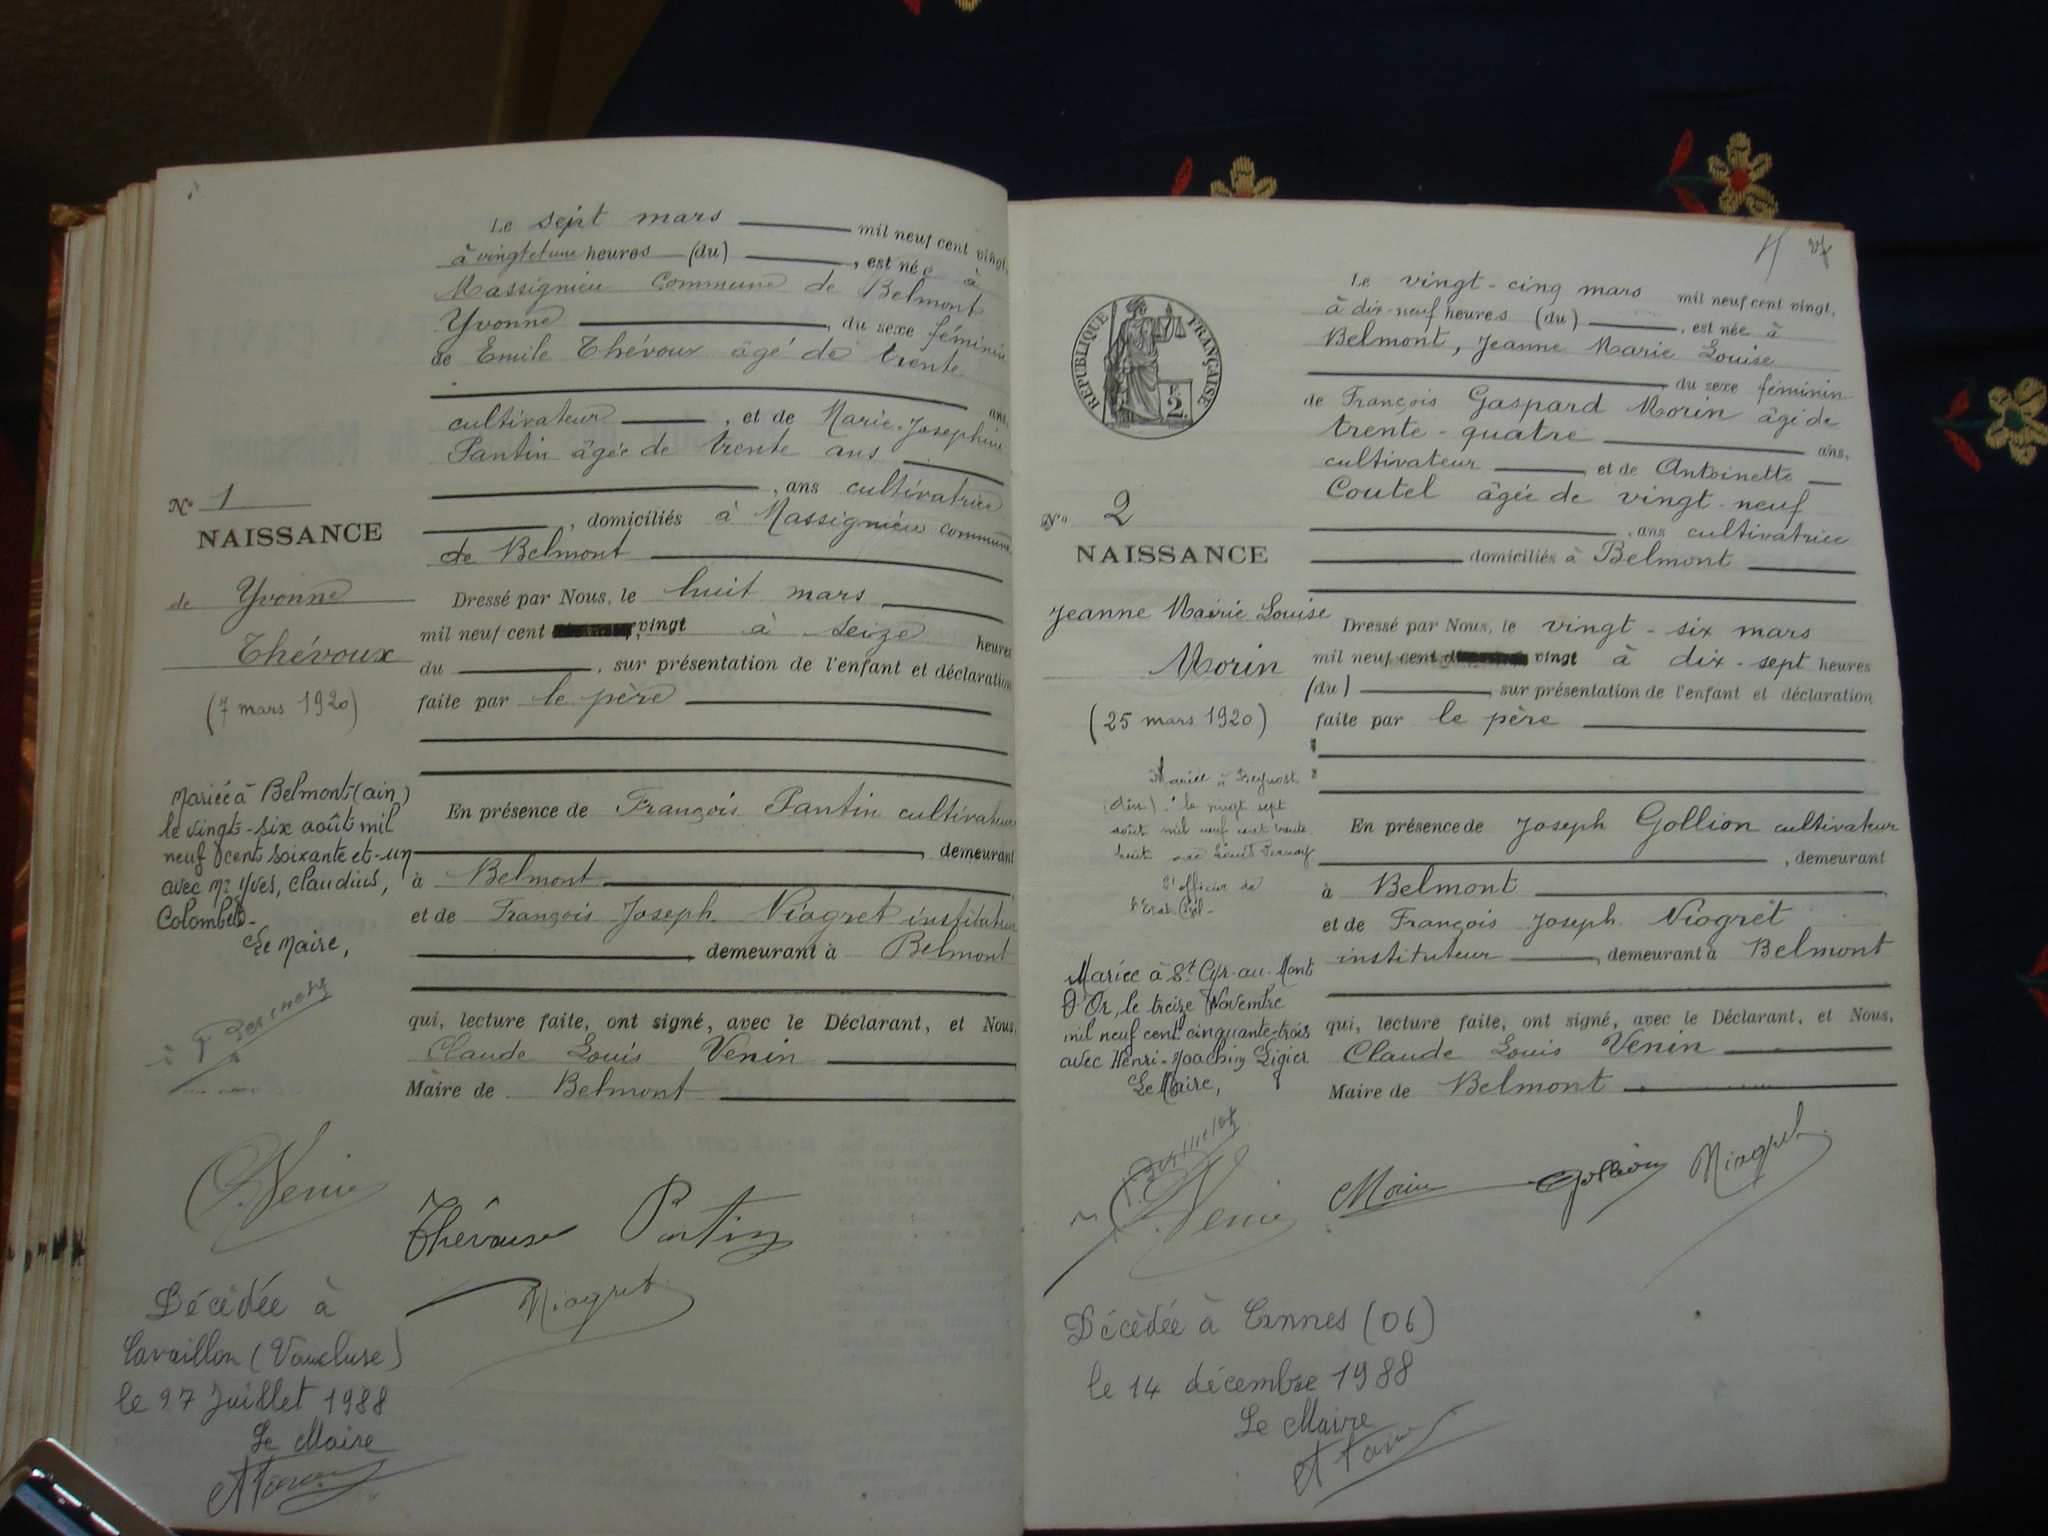 Le sept mars mil neuf cent vingt,
à vingt et une heures (du) , est née à
Massignieu Commune de Belmont
Yvonne , du sexe féminin
de Emile Thévoux âgé de trente
ans,
cultivateur , et de Marie-Josephine
Pantin âgée de trente ans
, ans cultivatrice
, domiciliés à Massignieu commune
de Belmont
Nº 1
NAISSANCE
de Yvonne
Thévoux
(7 mars 1920)
Dressé par Nous, le huit mars
mil neuf cent vingt à seize heures
du , sur présentation de l'enfant et déclaration
faite par le père
Mariée à Belmont (ain)
le vingt-six août mil
neuf cent soixante et-un
avec Mr Yves, Claudius,
Colombet-
Le Maire,
En présence de François Pantin cultivateur
, demeurant
à Belmont
et de François Joseph Niogret instituteur
demeurant à Belmont
qui, lecture faite, ont signé, avec le Déclarant, et Nous,
Claude Louis Venin
Maire de Belmont
C. Venin
Thévoux Pantin
Niogret
Décédée à
Cavaillon (Vaucluse)
le 27 Juillet 1988
Le Maire
Le vingt-cinq mars mil neuf cent vingt,
à dix-neuf heures (du) , est née à
Belmont, Jeanne Marie Louise
du sexe féminin
de François Gaspard Morin âgé de
trente-quatre ans,
cultivateur et de Antoinette
Coutel âgée de vingt-neuf
, ans cultivatrice
domiciliés à Belmont
RÉPUBLIQUE FRANÇAISE
2
Nº 2
NAISSANCE
Jeanne Marie Louise
Morin
(25 mars 1920)
Dressé par Nous, le vingt-six mars
mil neuf cent vingt à dix-sept heures
(du) , sur présentation de l'enfant et déclaration
faite par le père
Mariée à
(Ain) le vingt sept
août mil neuf cent trente
huit avec Louis Vernay
L'officier de
l'Etat Civil-
Mariée à St Cyr-au-Mont
D'Or, le treize Novembre
mil neuf cent cinquante-trois
avec Henri-Joachim Ligier
Le Maire,
En présence de Joseph Gollion cultivateur
, demeurant
à Belmont
et de François Joseph Niogret
instituteur , demeurant à Belmont
qui, lecture faite, ont signé, avec le Déclarant, et Nous,
Claude Louis Venin
Maire de Belmont
C. Venin Morin Gollion Niogret
Décédée à Cannes (06)
le 14 décembre 1988
Le Maire